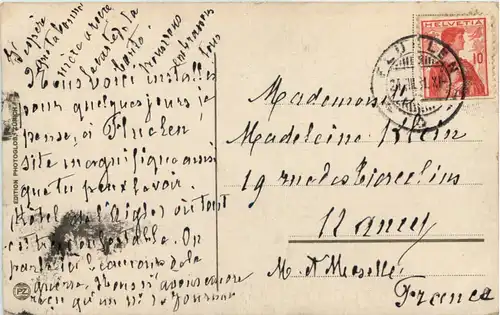 J'espère
que ta bonne
mère a reçu
la carte de la
santé
embrassons
tous
Nous voici installés
pour quelques jours je
pense, à Fluelen
site magnifique ainsi
que tu peux le voir.
Hôtel de l'Aigle où tout
est très confortable. On
parle ici beaucoup de la
guerre. Nous n'avons encore
reçu qu'un n° du Journal
EDITION PHOTOGLOB, ZÜRICH
PZ
HELVETIA
10
FLÜELEN
Mademoiselle
Madeleine Klein
19 rue des Tiercelins
Nancy
M. et Moselle
France